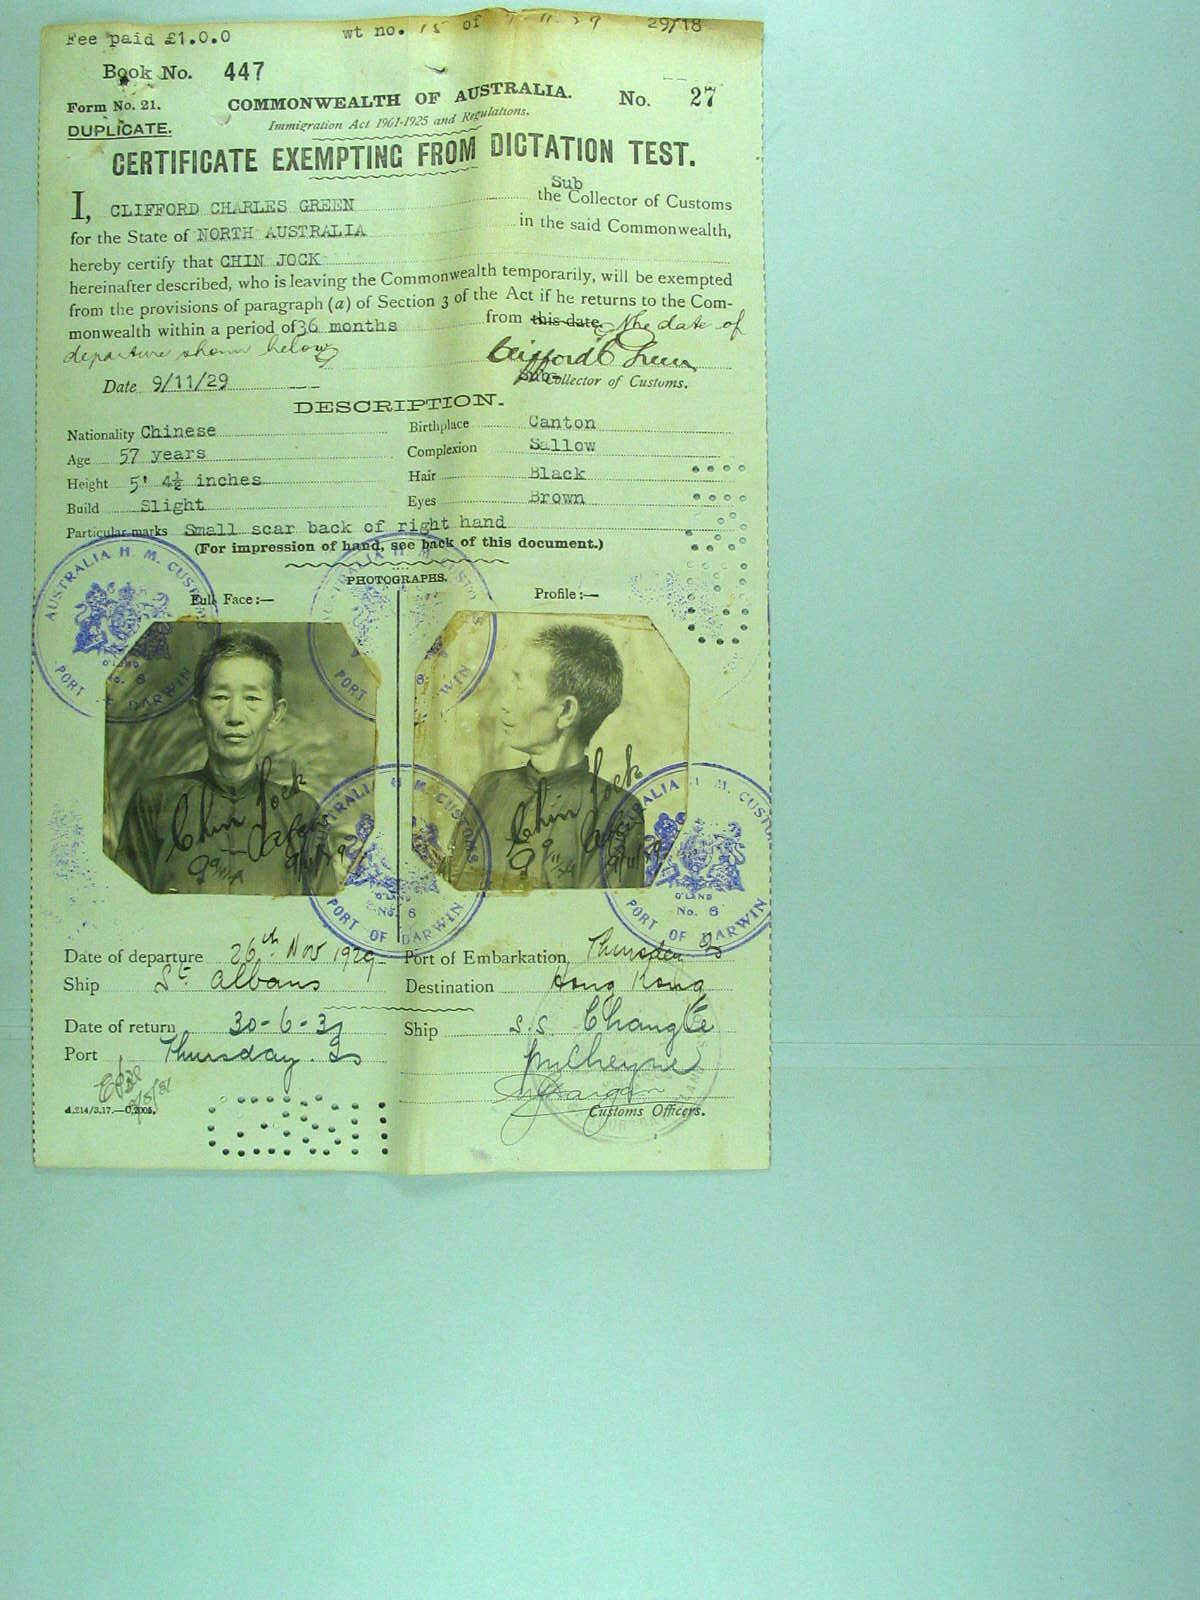 Fee paid £1.0.0 wt no. 15 of 29/18
Book No. 447
Form No. 21. COMMONWEALTH OF AUSTRALIA. No. 27
DUPLICATE. Immigration Act 1901-1925 and Regulations.
CERTIFICATE EXEMPTING FROM DICTATION TEST.
Sub
I, CLIFFORD CHARLES GREEN the Collector of Customs
for the State of NORTH AUSTRALIA in the said Commonwealth,
hereby certify that CHIN JOCK
hereinafter described, who is leaving the Commonwealth temporarily, will be exempted
from the provisions of paragraph (a) of Section 3 of the Act if he returns to the Com-
monwealth within a period of 36 months from this date. the date of
departure shown below
Clifford C Green
Date 9/11/29 Sub-Collector of Customs.
DESCRIPTION.
Nationality Chinese Birthplace Canton
Age 57 years Complexion Sallow
Height 5' 4½ inches Hair Black
Build Slight Eyes Brown
Particular marks Small scar back of right hand
(For impression of hand, see back of this document.)
PHOTOGRAPHS.
Full Face:— Profile:—
AUSTRALIA H. M. CUSTOMS
Q'LAND
No. 6
PORT OF DARWIN
Chin Jock Chin Jock
9/11/29 9/11/29
AUSTRALIA H. M. CUSTOMS
Q'LAND
No. 6
PORT OF DARWIN
AUSTRALIA H. M. CUSTOMS
Q'LAND
No. 6
PORT OF DARWIN
Date of departure 26th Nov 1929 Port of Embarkation Thursday Is
Ship St. Albans Destination Hong Kong
Date of return 30-6-31 Ship s.s. Changte
Port Thursday Is
Customs Officers.